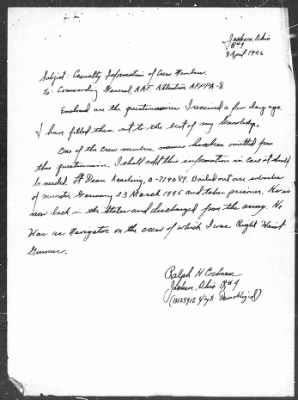 Jackson, Ohio
R#4
8 April 1946
Subject: Casualty Information of Crew Members.
To: Commanding General AAF Attention AFPPA-8
Enclosed are the questionnaires I received a few day ago.
I have filled them out to the best of my knowledge.
One of the crew members names has been omitted from
this questionnaire. I shall add this information in case it should
be needed. Lt Dean 0-719089. Bailed out over
munster Germany 23 March 1945 and taken prisoner. He is
now back in the States and discharged from the army. He
Was as Navigator on the crew of which I was Right Waist
Gunner.
Ralph H Cochran
Jackson, Ohio R#4